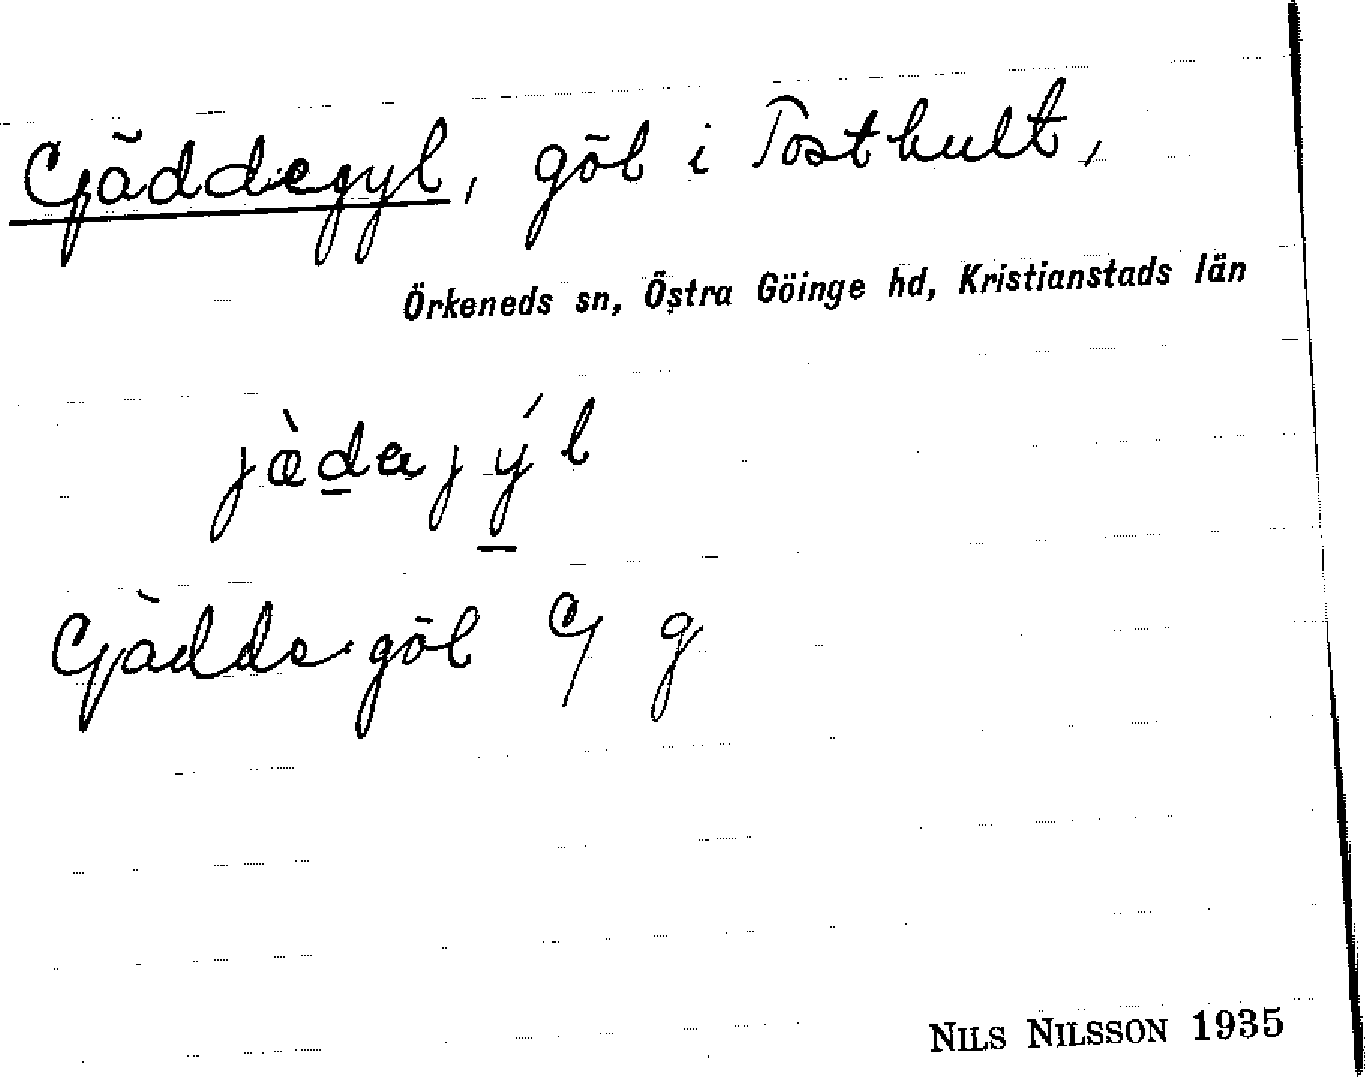 Gäddegyl, göl i Tosthult,
Örkeneds sn, Östra Göinge hd, Kristianstads län
jàdajýl
Gäddegöl G g
NILS NILSSON 1935